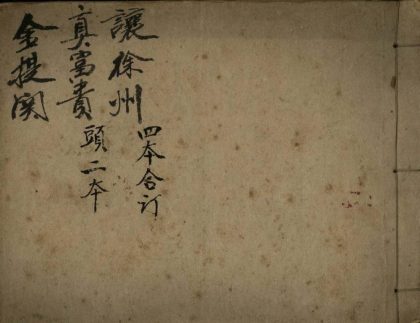 讓徐州
四本合订
真富貴
頭二本
金提関